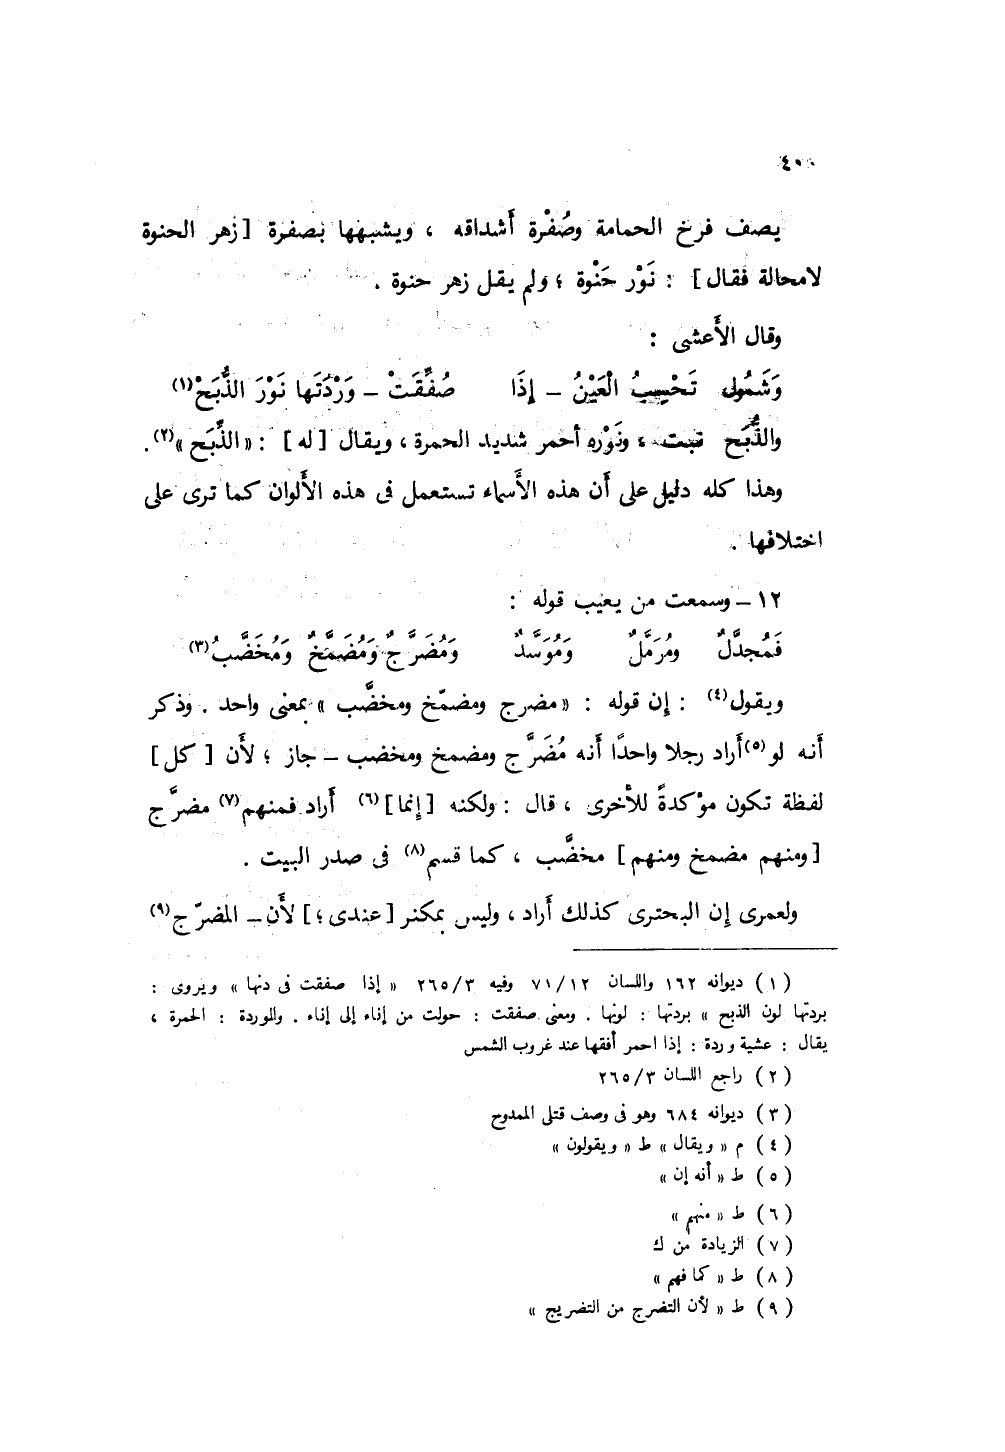 ٤٠٠
يصف فرخ الحمامة وصُفْرة أَشداقه ، ويشبهها بصفرة [ زهر الحنوة
لامحالة فقال ] : نَوْر حَنْوة ؛ ولم يقل زهر حنوة .
وقال الأَعشى :
وَشَمُولٍ تَحْسِبُ الْعَيْنُ – إِذَا صُفِّقَتْ – وَرْدَتَها نَوْرَ الذُّبَحْ(١)
والذُّبَح نبت ، ونَوْره أحمر شديد الحمرة ، ويقال [ له ] : « الذِّبَح »(٢).
وهذا كله دليل على أَن هذه الأَسماء تستعمل فى هذه الأَلوان كما ترى على
اختلافها .
١٢ – وسمعت من يعيب قوله :
فَمُجدَّلٌ ومُرَمَّلٌ وَمُوَسَّدٌ وَمُضَرَّجٌ وَمُضَمَّخٌ وَمُخَضَّبُ(٣)
ويقول(٤) : إِن قوله : « مضرج ومضمّخ ومخضَّب » بمعنى واحد . وذكر
أَنه لو(٥) أَراد رجلا واحدًا أَنه مُضَرَّج ومضمخ ومخضب – جاز ؛ لأَن [ كل ]
لفظة تكون مؤكدةً للأُخرى ، قال : ولكنه [ إِنما ](٦) أَراد فمنهم(٧) مضرَّج
[ ومنهم مضمخ ومنهم ] مخضَّب ، كما قسم(٨) فى صدر البيت .
ولعمرى إِن البحترى كذلك أَراد ، وليس بمكنر [ عندى ؛ ] لأَن – المضرّج(٩)
( ١ ) ديوانه ١٦٢ واللسان ٧١/١٢ وفيه ٢٦٥/٣ « إذا صفقت فى دنها » ويروى :
بردتها لون الذبح » بردتها : لونها . ومعنى صفقت : حولت من إناء إلى إناء . والموردة : الحمرة ،
يقال : عشية وردة : إذا احمر أفقها عند غروب الشمس
( ٢ ) راجع اللسان ٢٦٥/٣
( ٣ ) ديوانه ٦٨٤ وهو فى وصف قتلى الممدوح
( ٤ ) م « ويقال » ط « ويقولون »
( ٥ ) ط « أنه إن »
( ٦ ) ط « منهم »
( ٧ ) الزيادة من ك
( ٨ ) ط « كما فهم »
( ٩ ) ط « لأن التضرج من التضريج »